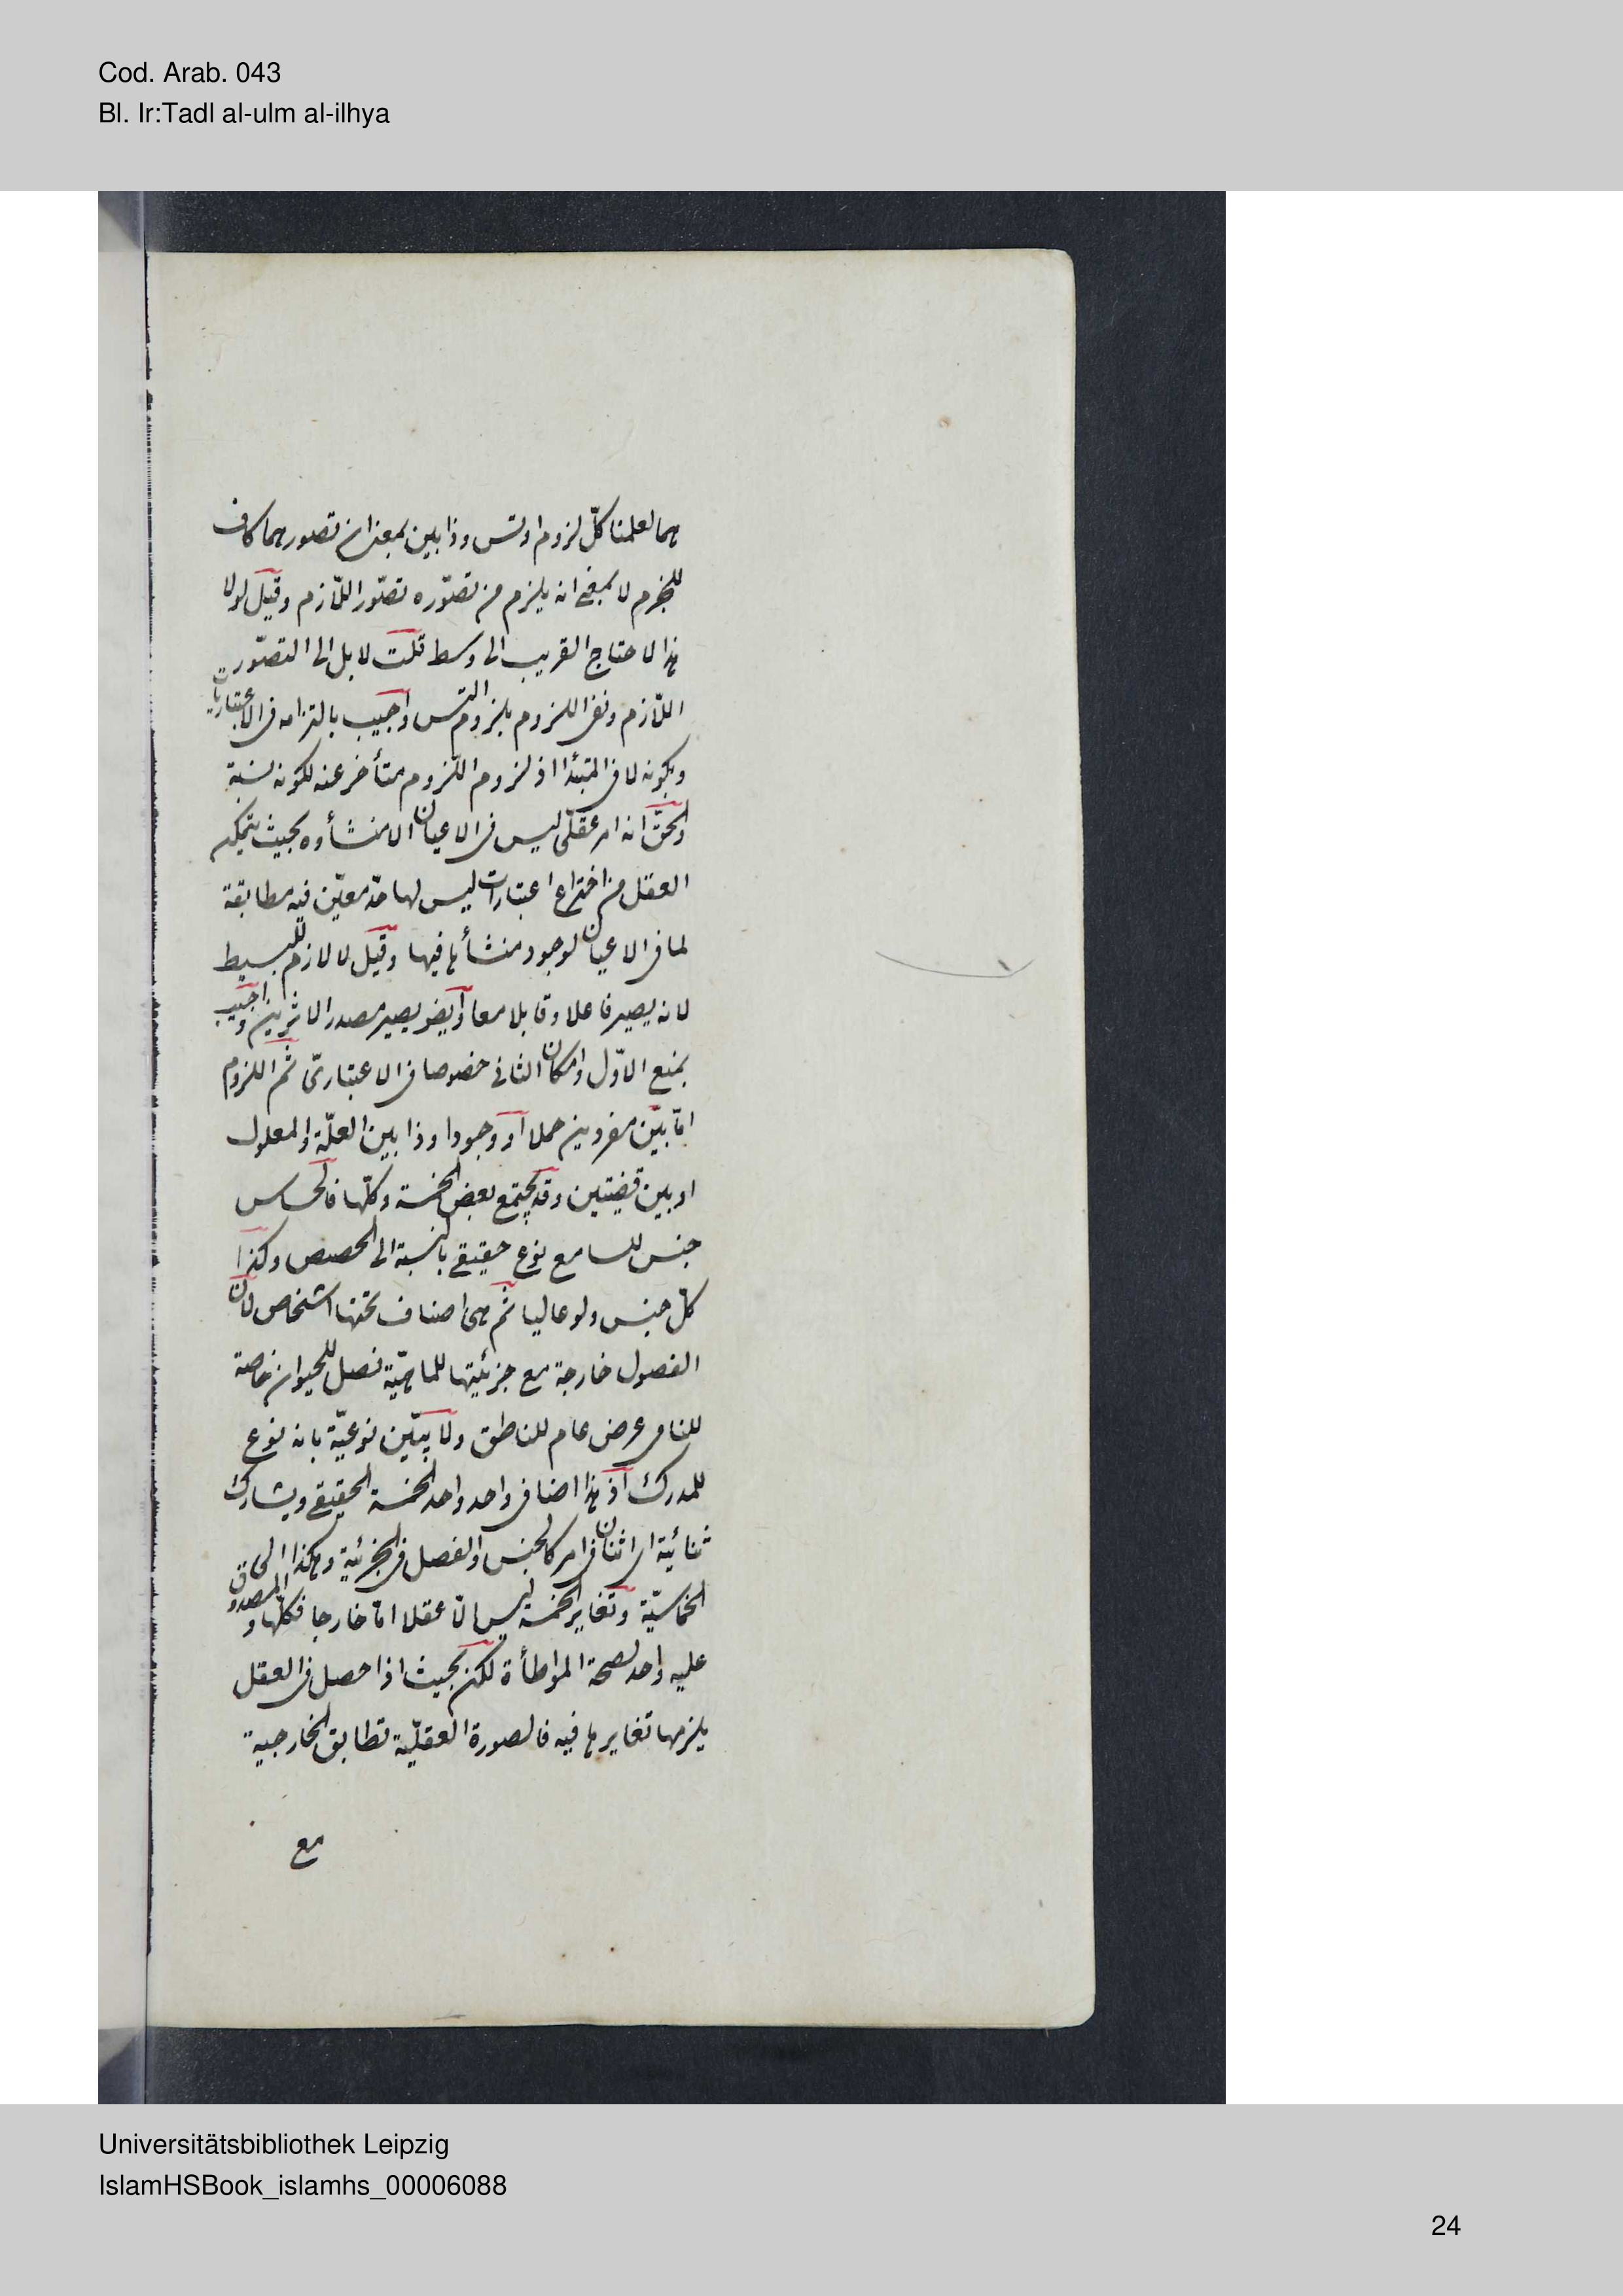 Cod. Arab. 043
Bl. Ir:Tadl al-ulm al-ilhya
هما لعلمنا كلّ لزوم او تس وذا بين بمعنى ان تصورهما كاف
للجزم لا بمعنى انه يلزم من تصوّره تصوّر اللّازم وقيل لولا
هذا لاحتاج القريب الى وسط قلت لا بل الى التصوّر
اللّازم ونفى اللزوم بلزوم التس واجيب بالتزامه فى الاعتباريات
وبكونه لا فى المتبدّا اذ لزوم اللّزوم متأخر عنه لكونه نسبة
والحقّ انه امر عقلّى ليس فى الاعيان الا منشأوه بحيث يتمكن
العقل من اختراع اعتبارات ليس لها حدّ معيّن فيه مطابقة
لما فى الاعيان لوجود منشأها فيها وقيل لا لازم للبسيط
لانه يصير فاعلا وقابلا معا وايضو يصير مصدر الاثرين واجيب
بمنع الاوّل وامكان الثانى خصوصا فى الاعتبارىّ ثم اللزوم
امّا بين مفردين حملا او وجودا وذا بين العلّة والمعلول
او بين قضيتين وقد يجتمع بعض الخمسة وكلّها فالحساس
جنس للسامع نوع حقيقى بالنسبة الى الحصص وكذا
كلّ جنس ولو عاليا ثم هى اصناف تحتها اشخاص لان
الفصول خارجة مع جزئيتها للماهيّة فصل للحيوان خاصة
للنامى عرض عام للناطق ولا يبيّن نوعيّة بانه نوع
للمدرك اذ هذا اضافى واحد واحد الخمسة الحقيقى ويشارك
ثنائية اى اثنان فى امر كالجنس والفصل فى الجزئية وهكذا الى
الخماسيّة وتغاير الخمسة ليس الّا عقلا امّا خارجا فكلّها والمصدوق
عليه واحد لصحة المواطأة لكن بحيث اذا حصل فى العقل
يلزمها تغايرها فيه فالصورة العقليّة تطابق الخارجية
مع
Universitätsbibliothek Leipzig
IslamHSBook_islamhs_00006088
24